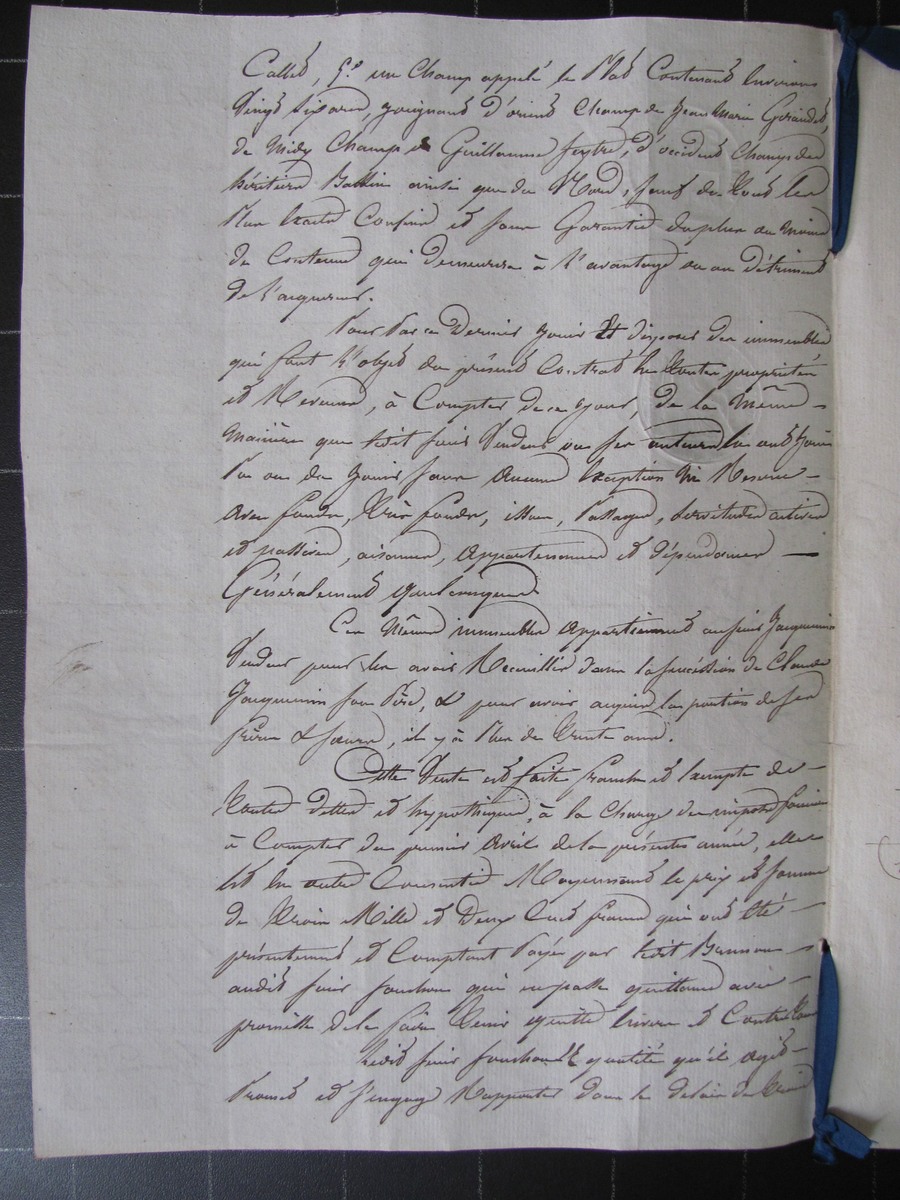 Callet, 5.º un Champ appelé le Plat Contenant Environs
Vingt six ares, joignant d'orient Champ de Jean Marie Giraudet,
de Midy Champ de Guillaume feytre, d'occident Champ des
héritiers Ballin ainsi que du Nord, sauf de tous les
Plus Exacts Confins et sans Garantie du plus au Moins
de Contenue qui demeurera à l'avantage ou au détriment
de l'acquereur.
Pour Par ce Dernier Jouir Et disposer des immeubles
qui font l'objet du présent Contrat En toutes propriétés
et Revenus, à Compter de ce Jour, de la Même
Manière que ledit sieur Vendeur ou ses auteurs En ont Joui
Pu ou du Jouir sans Aucune Exception Ni Réserve
Avec fonds, Très fonds, issues, Passages, servitudes actives
et passives, aisances, Appartenances et dépendances
Généralement quelconques
Ces Mêmes immeubles Appartiennent au sieur Jacquemin
Vendeur pour les avoir Recueillis dans la succession de Claude
Jacquemin son Père, & pour avoir acquis la portion de ses
frères & sœurs, il y à Plus de Trente ans.
Cette Vente est faite franche et Exempte de
Toutes dettes et hypothèques, à la Charge des impots fonciers
à Compter du premier Avril de la présente année, elle
Est En outre Consentie Moyennant le prix et somme
de Trois Mille et Deux Cent francs qui ont Eté
présentement et Comptant Payés par ledit
audit sieur fouchou qui en passe quittance avec
promesse de le faire Tenir quitte Envers et Contre Tous
Ledit sieur fouchou Et qualité qu'il agit
Promet et s'engage Rapporter dans le délai de Trois